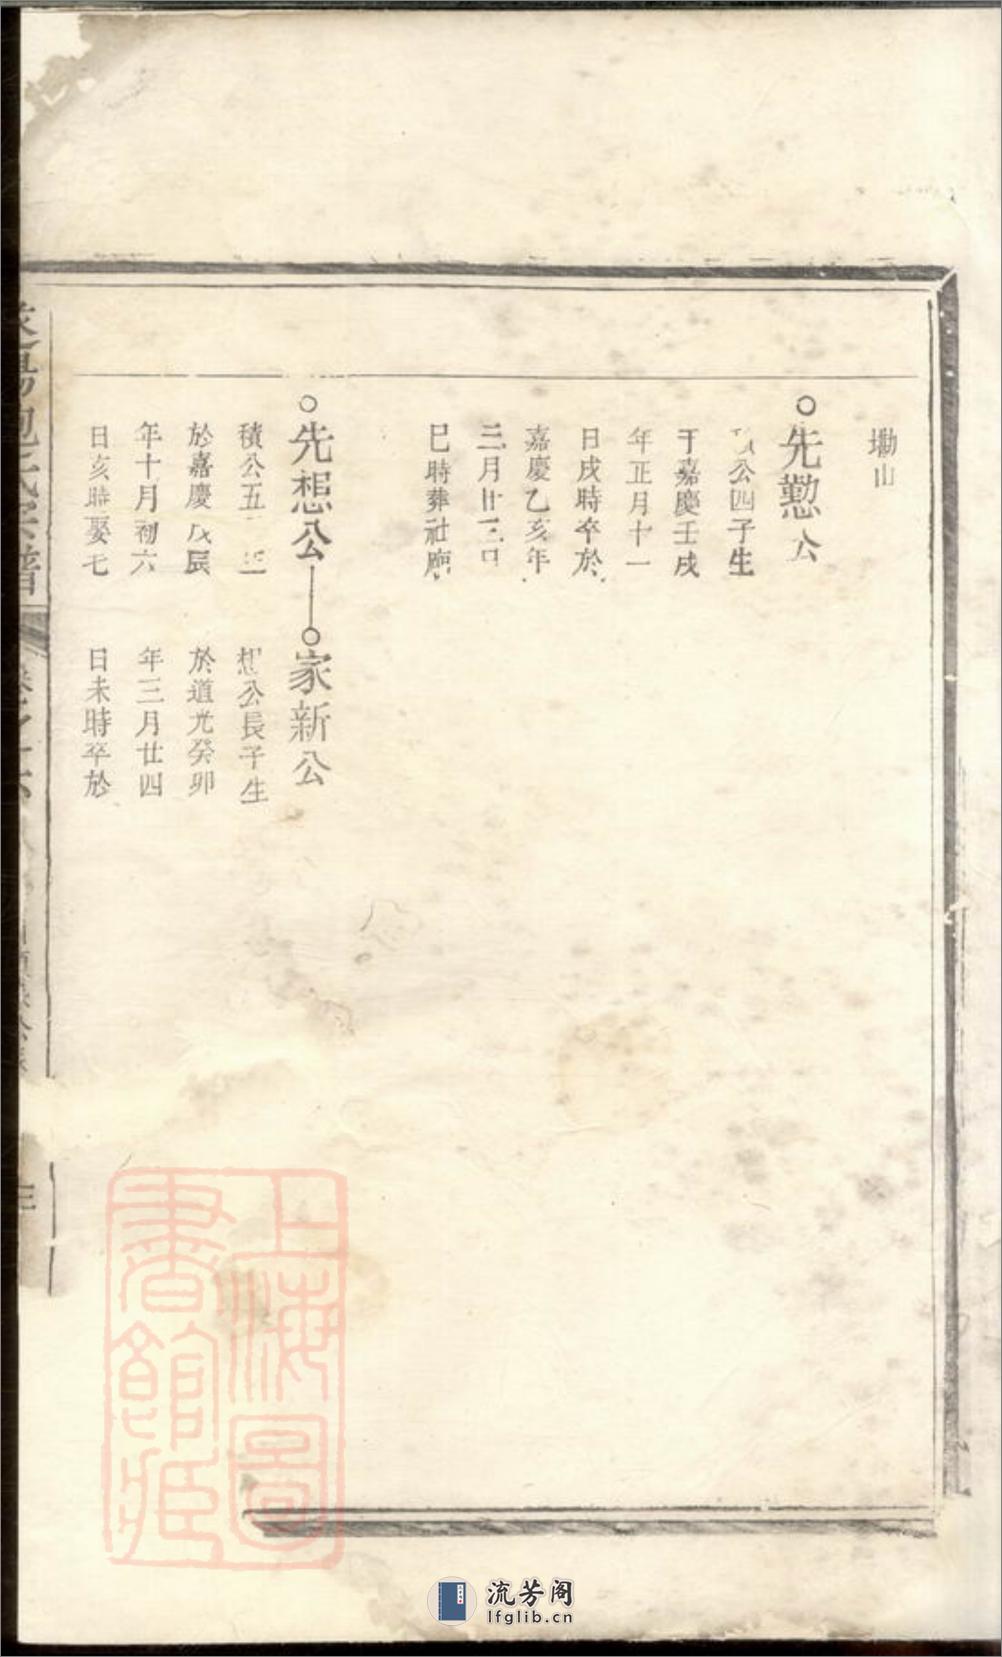 塲山
先懃公
公四子生
于嘉慶壬戌
年正月十一
日戌時卒於
嘉慶乙亥年
三月廿三日
巳時葬社廟
先想公
積公五子生
於嘉慶戊辰
年十月初六
日亥時娶七
家新公
想公長子生
於道光癸卯
年三月廿四
日未時卒於
包氏宗譜
上海圖書館藏
流芳阁
lfglib.cn